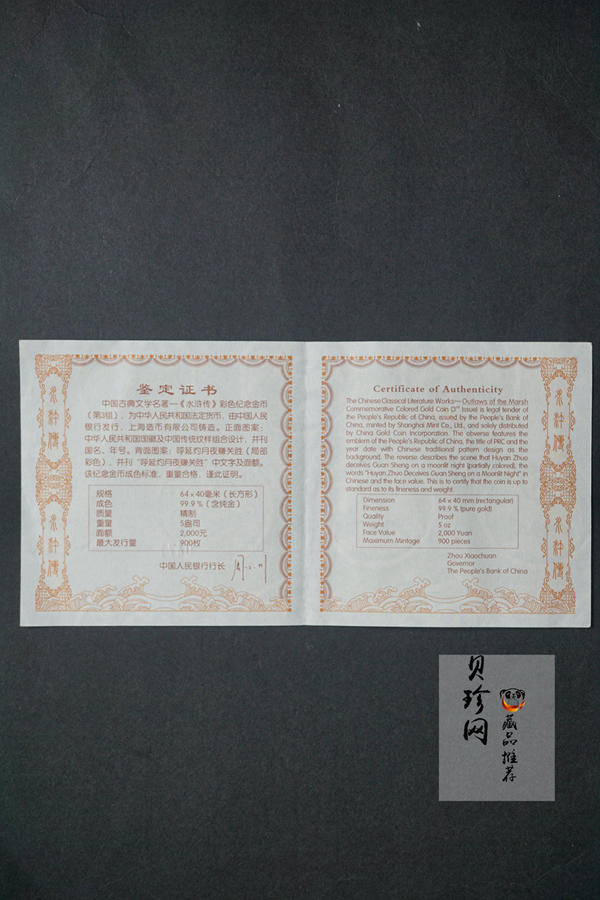 鉴定证书
中国古典文学名著—《水浒传》彩色纪念金币
（第3组），为中华人民共和国法定货币，由中国人民
银行发行，上海造币有限公司铸造。正面图案：
中华人民共和国国徽及中国传统纹样组合设计，并刊
国名、年号。背面图案：呼延灼月夜赚关胜（局部
彩色），并刊“呼延灼月夜赚关胜”中文字及面额。
该纪念金币成色标准，重量合格，谨此证明。
规格 64×40毫米（长方形）
成色 99.9％（含纯金）
质量 精制
重量 5盎司
面额 2,000元
最大发行量 900枚
中国人民银行行长
Certificate of Authenticity
The Chinese Classical Literature Works—Outlaws of the Marsh
Commemorative Colored Gold Coin (3rd Issue) is legal tender of
the People's Republic of China, issued by the People's Bank of
China, minted by Shanghai Mint Co., Ltd., and solely distributed
by China Gold Coin Incorporation. The obverse features the
emblem of the People's Republic of China, the title of PRC and the
year date with Chinese traditional pattern design as the
background. The reverse describes the scene that Huyan Zhuo
deceives Guan Sheng on a moonlit night (partially colored), the
words "Huyan Zhuo Deceives Guan Sheng on a Moonlit Night" in
Chinese and the face value. This is to certify that the coin is up to
standard as to its fineness and weight.
Dimension 64×40 mm (rectangular)
Fineness 99.9 % (pure gold)
Quality Proof
Weight 5 oz
Face Value 2,000 Yuan
Maximum Mintage 900 pieces
Zhou Xiaochuan
Governor
The People's Bank of China
水浒传
水浒传
水浒传
水浒传
贝珍网
藏品推荐